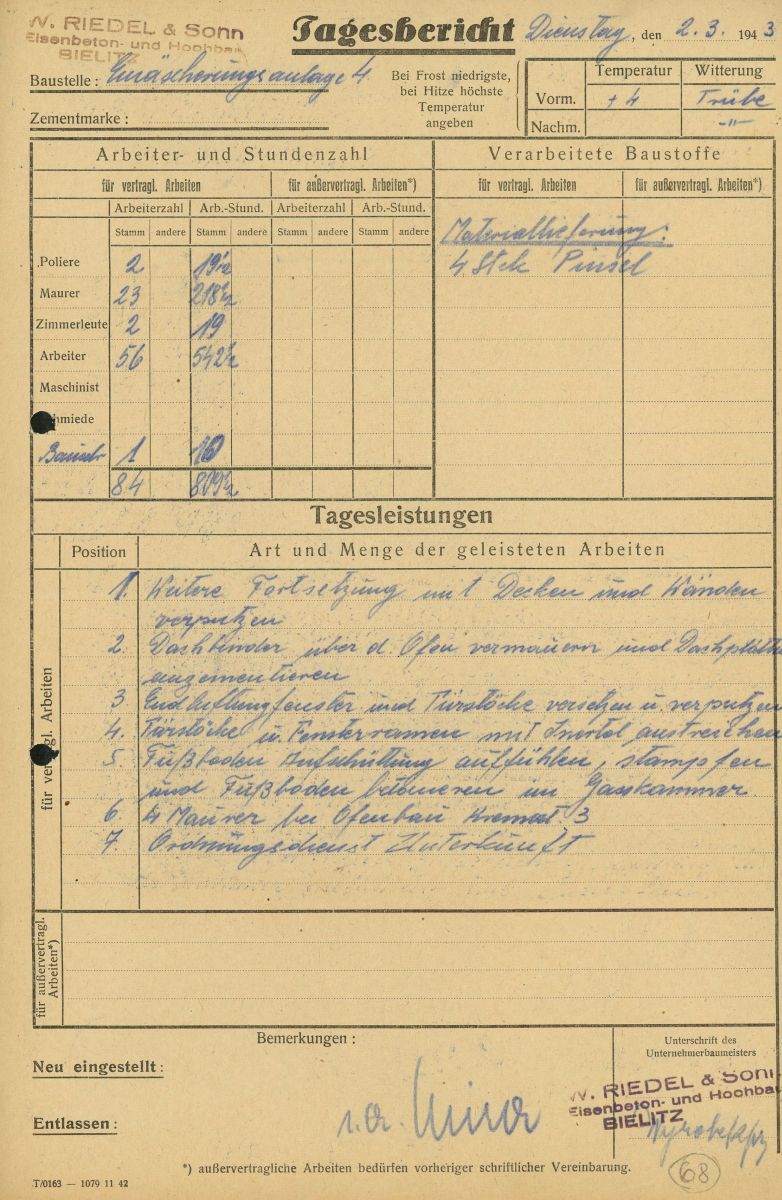 W. RIEDEL & Sohn
Eisenbeton- und Hochbau
BIELITZ
Tagesbericht Dienstag, den 2.3. 1943
Baustelle: Einäscherungsanlage 4
Zementmarke:
Bei Frost niedrigste,
bei Hitze höchste
Temperatur
angeben
Temperatur Witterung
Vorm. +4 Trübe
Nachm. -"-
Arbeiter- und Stundenzahl
Verarbeitete Baustoffe
für vertragl. Arbeiten für außervertragl. Arbeiten*) für vertragl. Arbeiten für außervertragl. Arbeiten*)
Arbeiterzahl Arb.-Stund. Arbeiterzahl Arb.-Stund.
Stamm andere Stamm andere Stamm andere Stamm andere
Materiallieferung:
4 Stck Pinsel
Poliere 2 19½
Maurer 23 218½
Zimmerleute 2 19
Arbeiter 56 542½
Maschinist
hmiede
1 10
84 809½
Tagesleistungen
Position Art und Menge der geleisteten Arbeiten
für vertragl. Arbeiten
1. Weitere Fortsetzung mit Decken und Wänden
verputzen
2. Dachbinder über d. Ofen vermauern und
anzementieren
3 Entlüftungfenster und Türstöcke versetzen u. verputzen
4. Türstöcke u. Fensterramen mit Inertol austreichen
5. Fußboden Aufschüttung auffühlen, stampfen
und Fußboden betonieren im Gasskammer
6. 4 Maurer bei Ofenbau Kremat. 3
7. Ordnungsdienst Unterkunft
für außervertragl. Arbeiten*)
Bemerkungen:
Neu eingestellt:
Entlassen:
Unterschrift des
Unternehmerbaumeisters
W. RIEDEL & Sohn
Eisenbeton- und Hochbau
BIELITZ
*) außervertragliche Arbeiten bedürfen vorheriger schriftlicher Vereinbarung.
T/0163 — 1079 11 42
68